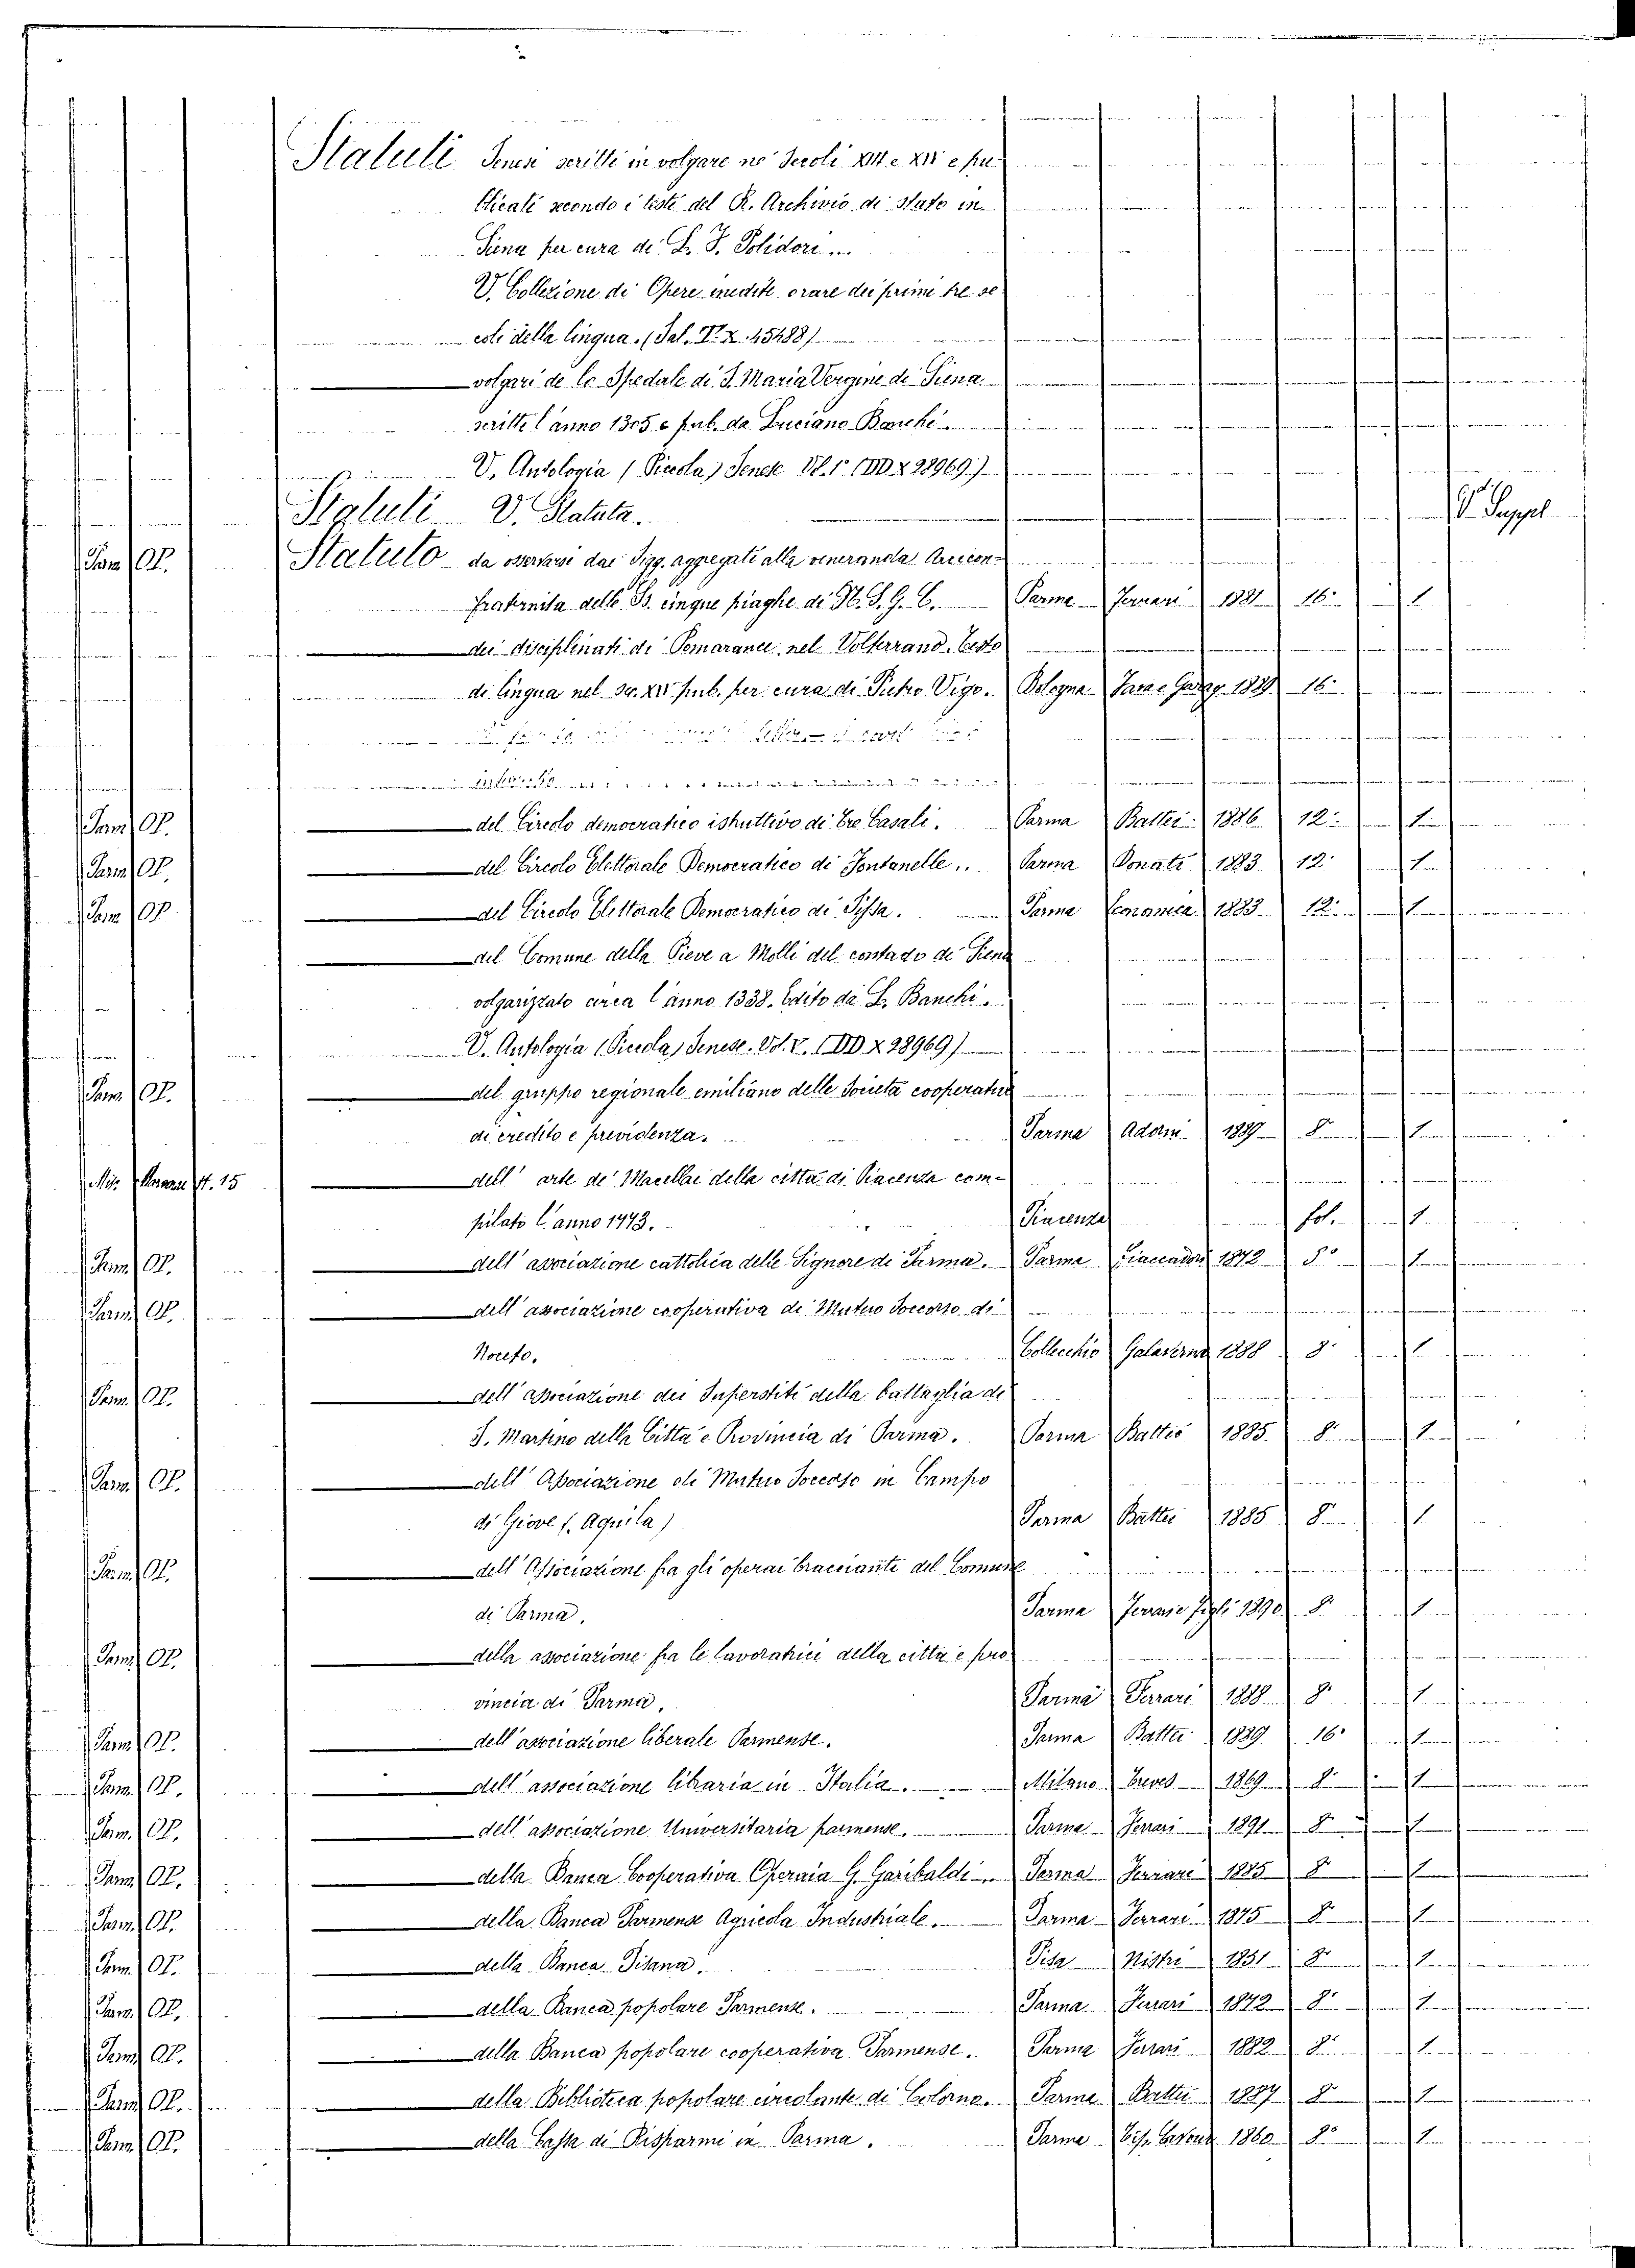 Statuti Senesi scritti in volgare ne' secoli XIII e XIV e pu-
blicati secondo i testi del R. Archivio di Stato in
Siena per cura di F. L. Polidori...
V. Collezione di Opere inedite o rare dei primi tre se
coli della lingua. (Sal. V. X. 45488)
volgari de lo Spedale di S. Maria Vergine di Siena
scritti l'anno 1305 e pub. da Luciano Banchi.
V. Antologia (Piccola) Senese Vol. 1° (DD X 28969)
Statuti V. Statuta. V. Suppl.
Statuto da osservarsi dai Sigg. aggregati alla veneranda Arcicon-
Parm OP. fraternita delle SS. cinque piaghe di N. S. G. C. Parma Ferrari 1821 16° 1
dei disciplinati di Pomarance nel Volterrano. Testo
di lingua nel sec. XIV pub. per cura di Pietro Vigo. Bologna Fava e Garag. 1889 16°
Parm OP. del Circolo democratico istruttivo di Tre Casali. Parma Battei 1886 12° 1
Parm OP. del Circolo Elettorale Democratico di Fontanelle.. Parma Donati 1883 12° 1
Parm OP. del Circolo Elettorale Democratico di Sissa. Parma Economica 1883 12° 1
del Comune della Pieve a Molli del contado di Siena
volgarizzato circa l'anno 1338. Edito da L. Banchi.
V. Antologia (Piccola) Senese. Vol. V. (DD X 28969)
Parm OP. del gruppo regionale emiliano delle Società cooperative
di credito e previdenza. Parma Adorni 1889 8° 1
dell' arte de' Macellai della città di Piacenza com-
pilato l'anno 1473. Piacenza fol. 1
Parm OP. dell' associazione cattolica delle Signore di Parma. Parma Fiaccadori 1872 8° 1
Parm OP. dell' associazione cooperativa di Mutuo Soccorso di
Noceto. Collecchio Galaverna 1888 8° 1
Parm OP. dell' associazione dei Superstiti della battaglia di
S. Martino della Città e Provincia di Parma. Parma Battei 1885 8° 1
Parm OP. dell' Associazione di Mutuo Soccorso in Campo
di Giove (Aquila) Parma Battei 1885 8° 1
Parm OP. dell' Associazione fra gli operai braccianti del Comune
di Parma. Parma Ferrari e figli 1890 8° 1
Parm OP. della associazione fra le lavoratrici della città e pro
vincia di Parma. Parma Ferrari 1888 8° 1
Parm OP. dell' associazione liberale Parmense. Parma Battei 1889 16° 1
Parm OP. dell' associazione libraria in Italia. Milano Treves 1869 8° 1
Parm. OP. dell' associazione Universitaria parmense. Parma Ferrari 1891 8° 1
Parm OP. della Banca Cooperativa Operaia G. Garibaldi.. Parma Ferrari 1885 8° 1
Parm. OP. della Banca Parmense Agricola Industriale. Parma Ferrari 1875 8° 1
Parm. OP. della Banca Pisana. Pisa Nistri 1851 8° 1
Parm. OP. della Banca popolare Parmense. Parma Ferrari 1872 8° 1
Parm OP. della Banca popolare cooperativa Parmense. Parma Ferrari 1882 8° 1
Parm OP. della Biblioteca popolare circolante di Colorno. Parma Battei 1887 8° 1
Parm. OP. della Cassa di Risparmi in Parma. Parma Tip. Cavour 1860 8° 1